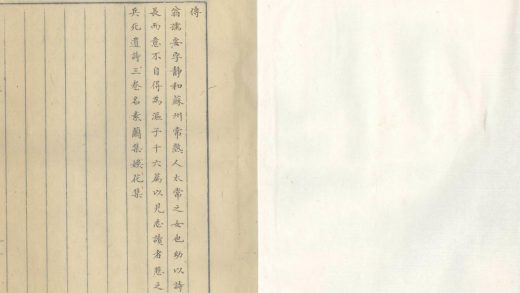 傳
翁孺安字靜和蘇州常熟人太常之女也幼以詩
長而意不自得為漚子十六篇以見志讀者悲之
兵死遺詩三卷名素蘭集花集